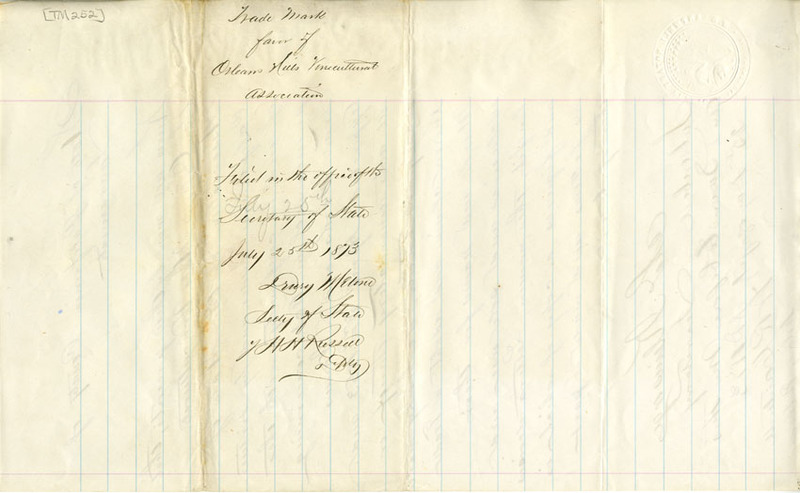 [TM 252]
Trade Mark
favor of
Orleans Hills Vinicultural
Association
Filed in the office of the
July 25th
Secretary of State
July 25th 1873
Drury Melone
Secty of State
H H Russell
Depty